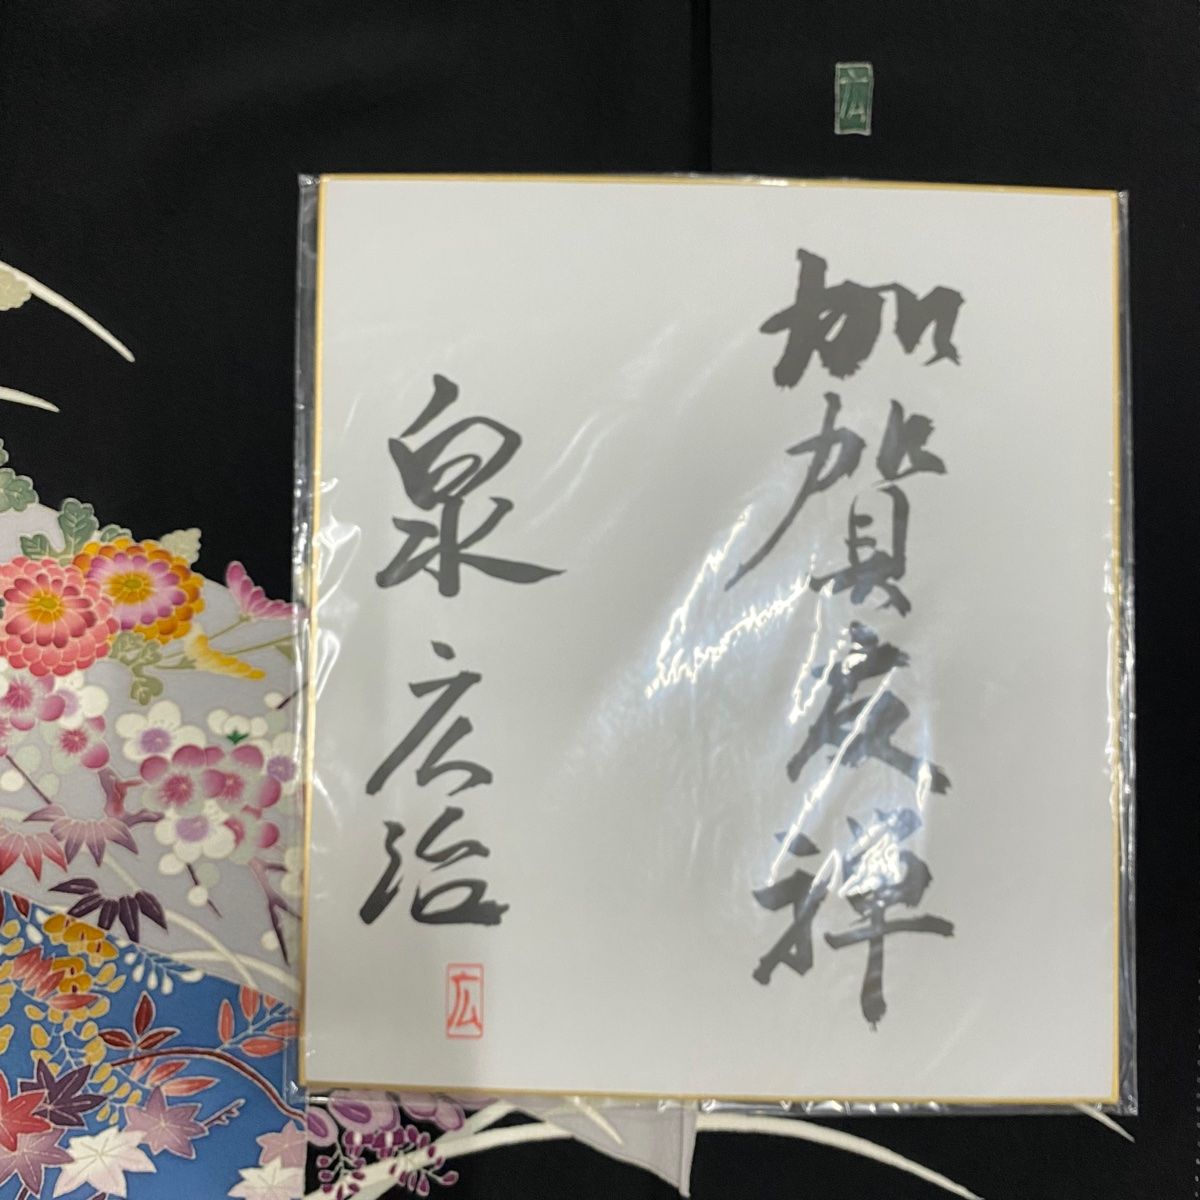 広
加賀友禅
泉広治
広